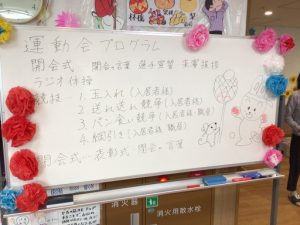 運動会プログラム
開会式 開会の言葉 選手宣誓 来賓挨拶
ラジオ体操
競技 - 1. 玉入れ(入居者様)
2. 送れ送れ競争(入居者様)
3. パン食い競争(入居者様・職員)
4. 綱引き(入居者様・職員)
閉会式 - 表彰式・閉会の言葉
消火器
消火用散水栓